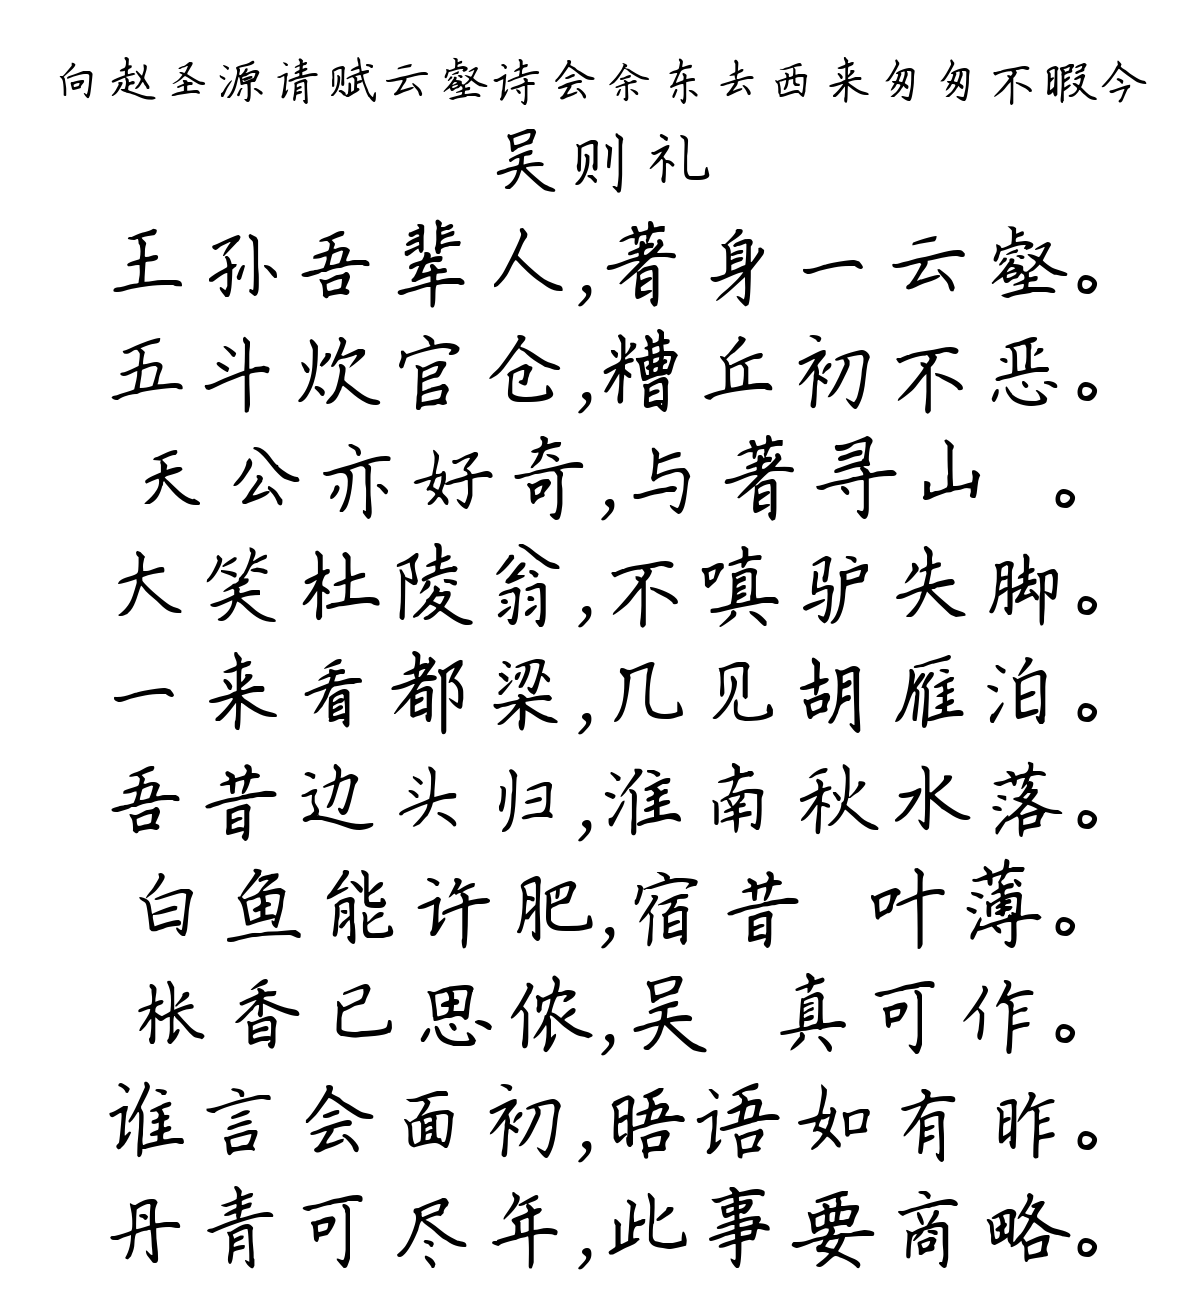 向赵圣源请赋云壑诗会余东去西来匆匆不暇今
吴则礼
王孙吾辈人,著身一云壑。
五斗炊官仓,糟丘初不恶。
天公亦好奇,与著寻山 。
大笑杜陵翁,不嗔驴失脚。
一来看都梁,几见胡雁泊。
吾昔边头归,淮南秋水落。
白鱼能许肥,宿昔 叶薄。
枨香已思侬,吴 真可作。
谁言会面初,晤语如有昨。
丹青可尽年,此事要商略。